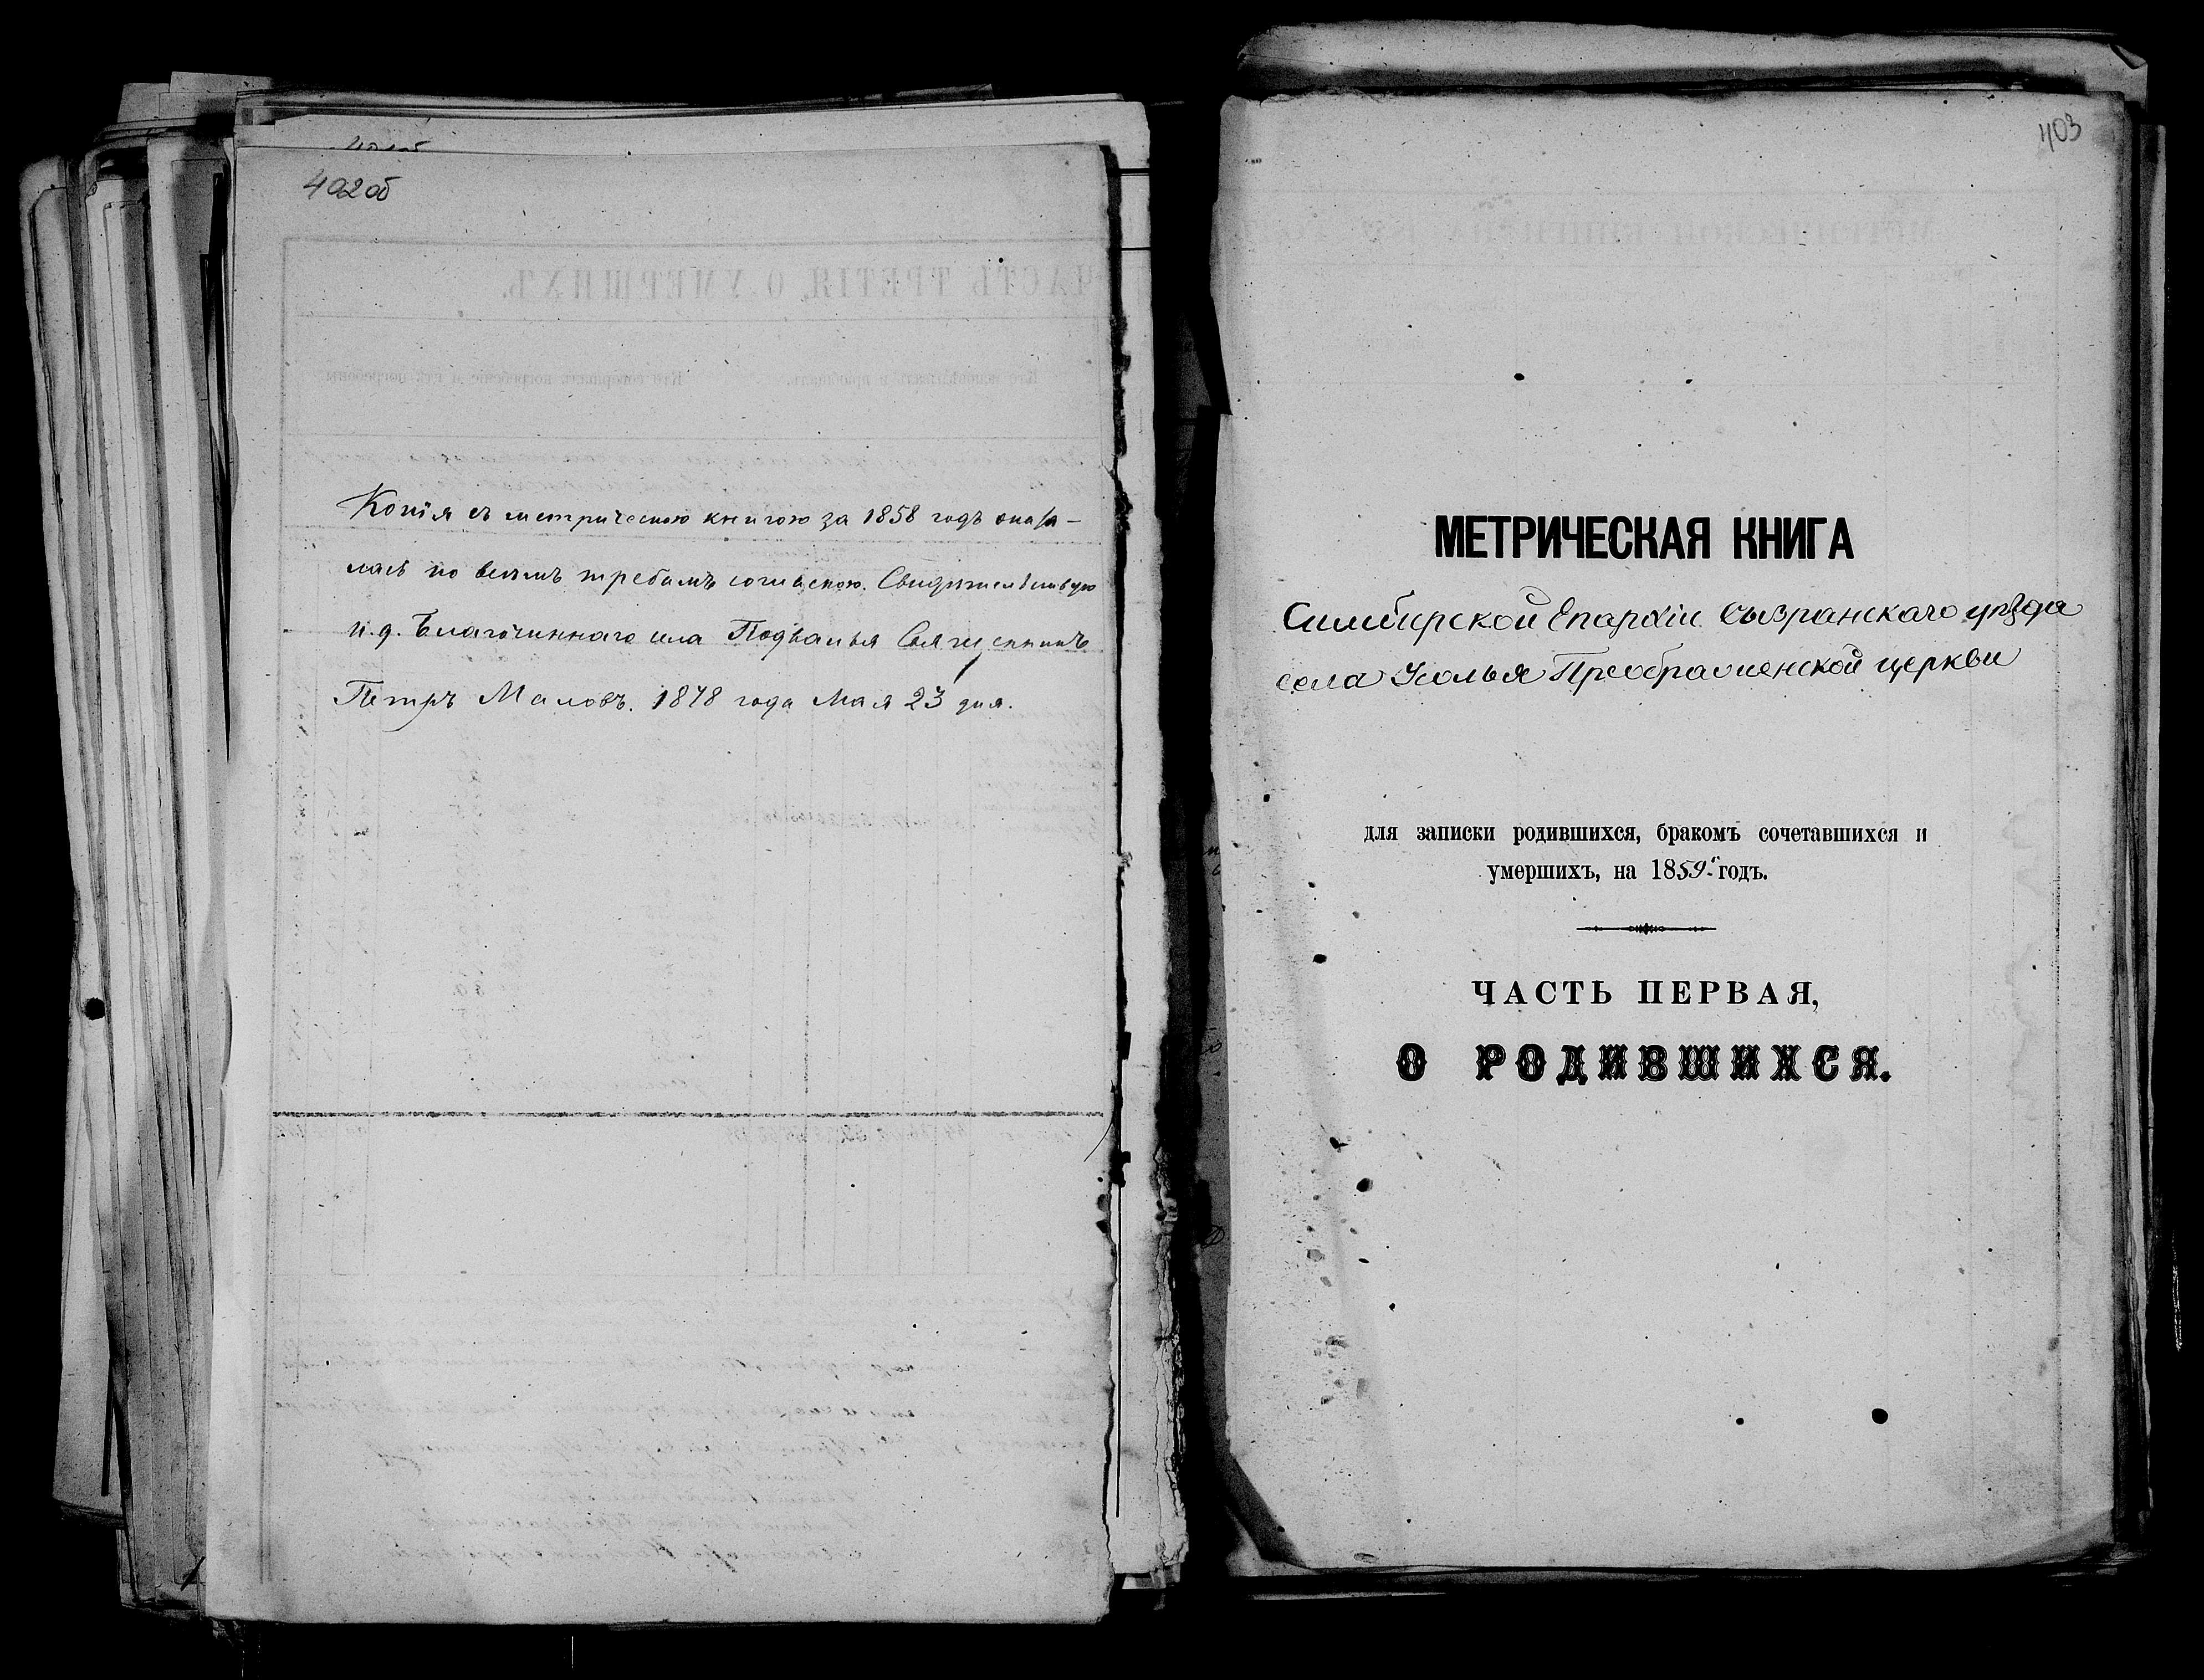 402об
Копія съ метрическою книгою за 1858 годъ оказа-
лась по всѣмъ требамъ согласною. Свидѣтельствую
и.д. Благочиннаго села Подвалья Священникъ
Петръ Маловъ. 1878 года Мая 23 дня.
403
МЕТРИЧЕСКАЯ КНИГА
Симбирской Епархіи Сызранскаго уѣзда
села Усолья Преображенской церкви
для записки родившихся, бракомъ сочетавшихся и
умершихъ, на 1859й годъ.
ЧАСТЬ ПЕРВАЯ,
О РОДИВШИХСЯ.